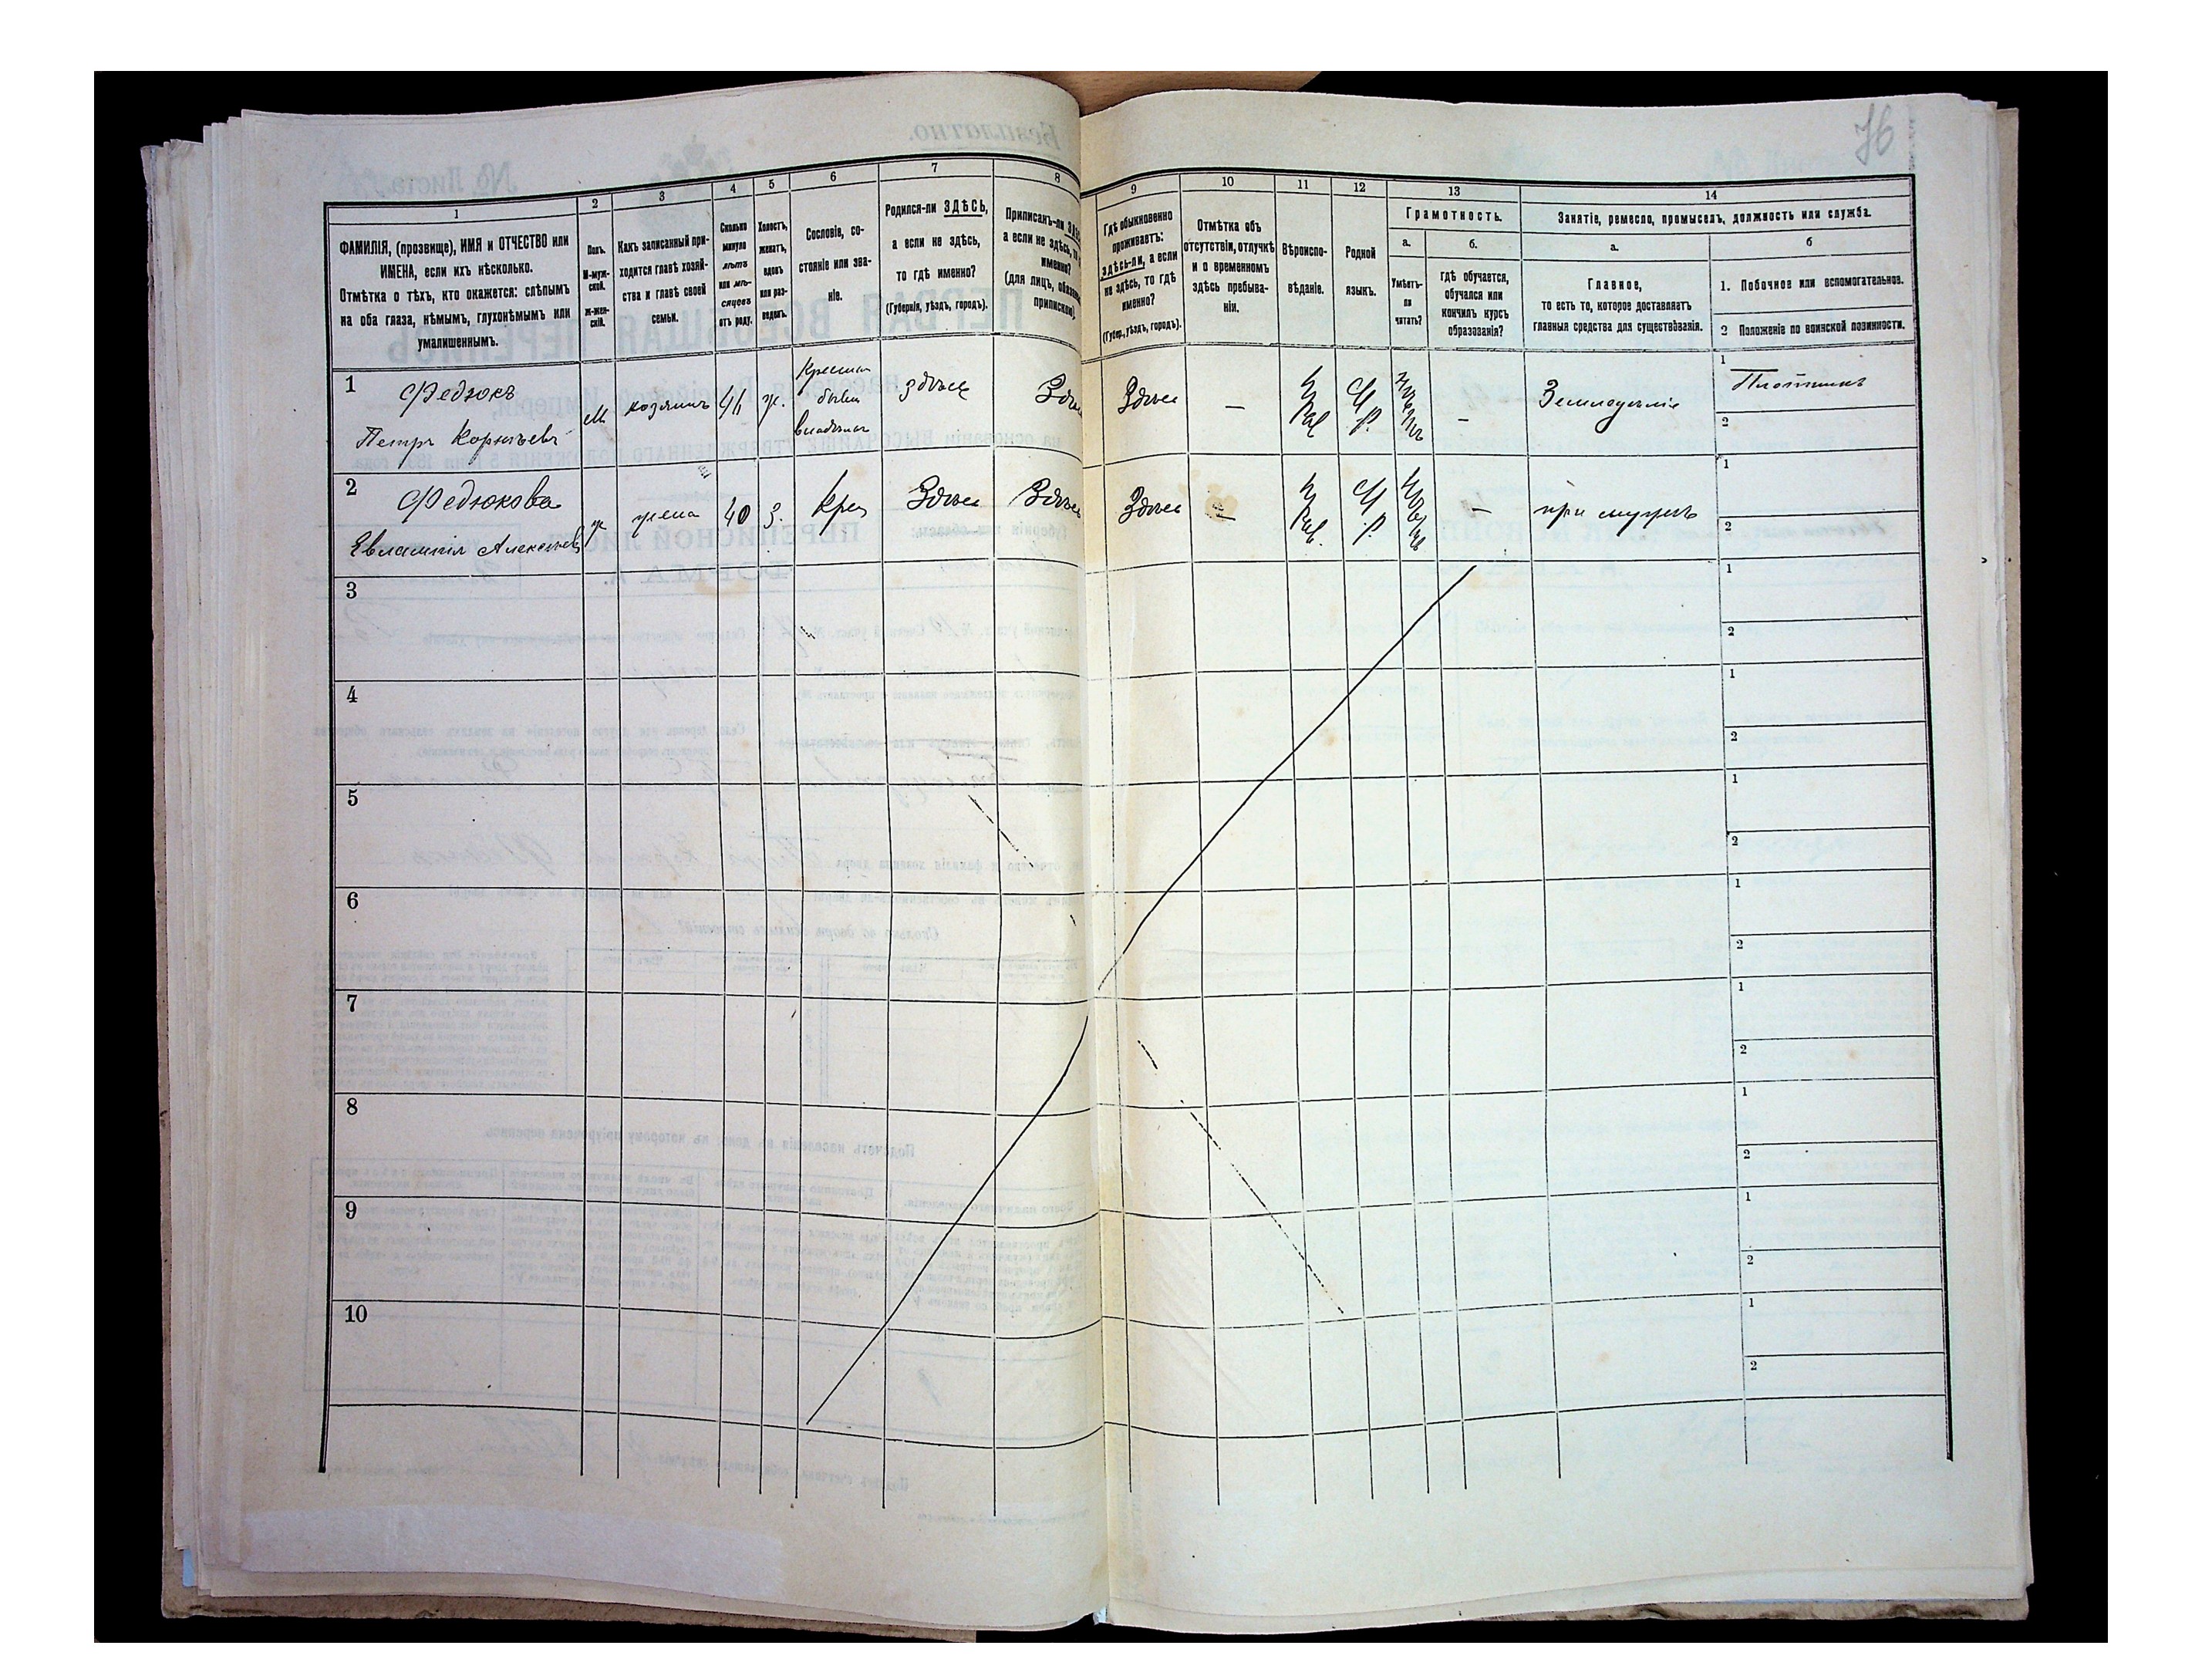 76
1
2
3
4
5
6
7
8
9
10
11
12
13
14
ФАМИЛІЯ, (прозвище), ИМЯ и ОТЧЕСТВО или
ИМЕНА, если ихъ нѣсколько.
Отмѣтка о тѣхъ, кто окажется: слѣпымъ
на оба глаза, нѣмымъ, глухонѣмымъ или
умалишеннымъ.
Полъ.
М-муж-
ской.
Ж-жен-
скій.
Какъ записанный при-
ходится главѣ хозяй-
ства и главѣ своей
семьи.
Сколько
минуло
лѣтъ
или мѣ-
сяцевъ
отъ роду.
Холостъ,
женатъ,
вдовъ
или раз-
веденъ.
Сословіе, со-
стояніе или зва-
ніе.
Родился-ли ЗДѢСЬ,
а если не здѣсь,
то гдѣ именно?
(Губернія, уѣздъ, городъ).
Приписанъ-ли
а если не здѣсь, то
именно?
(для лицъ,
припиской).
Гдѣ обыкновенно
проживаетъ:
здѣсь-ли, а если
не здѣсь, то гдѣ
именно?
(Губер., уѣздъ, городъ).
Отмѣтка объ
отсутствіи, отлучкѣ
и о временномъ
здѣсь пребыва-
ніи.
Вѣроиспо-
вѣданіе.
Родной
языкъ.
Грамотность.
а.
Умѣетъ-
ли
читать?
б.
гдѣ обучается,
обучался или
кончилъ курсъ
образованія?
Занятіе, ремесло, промыселъ, должность или служба.
а.
Главное,
то есть то, которое доставляетъ
главныя средства для существованія.
б
1. Побочное или вспомогательное.
2 Положеніе по воинской повинности.
1
Федюкъ
Петръ Корнѣевъ
М
хозяинъ
ж.
здѣсь
Здѣсь
—
Пра
—
Земледѣліе
1
Плотникъ
2
2
Федюкова
Евлампія Алексѣев
ж
жена
40
З.
Крес
Здѣсь
Здѣсь
Здѣсь
—
—
при мужѣ
1
2
3
1
2
4
1
2
5
1
2
6
1
2
7
1
2
8
1
2
9
1
2
10
1
2